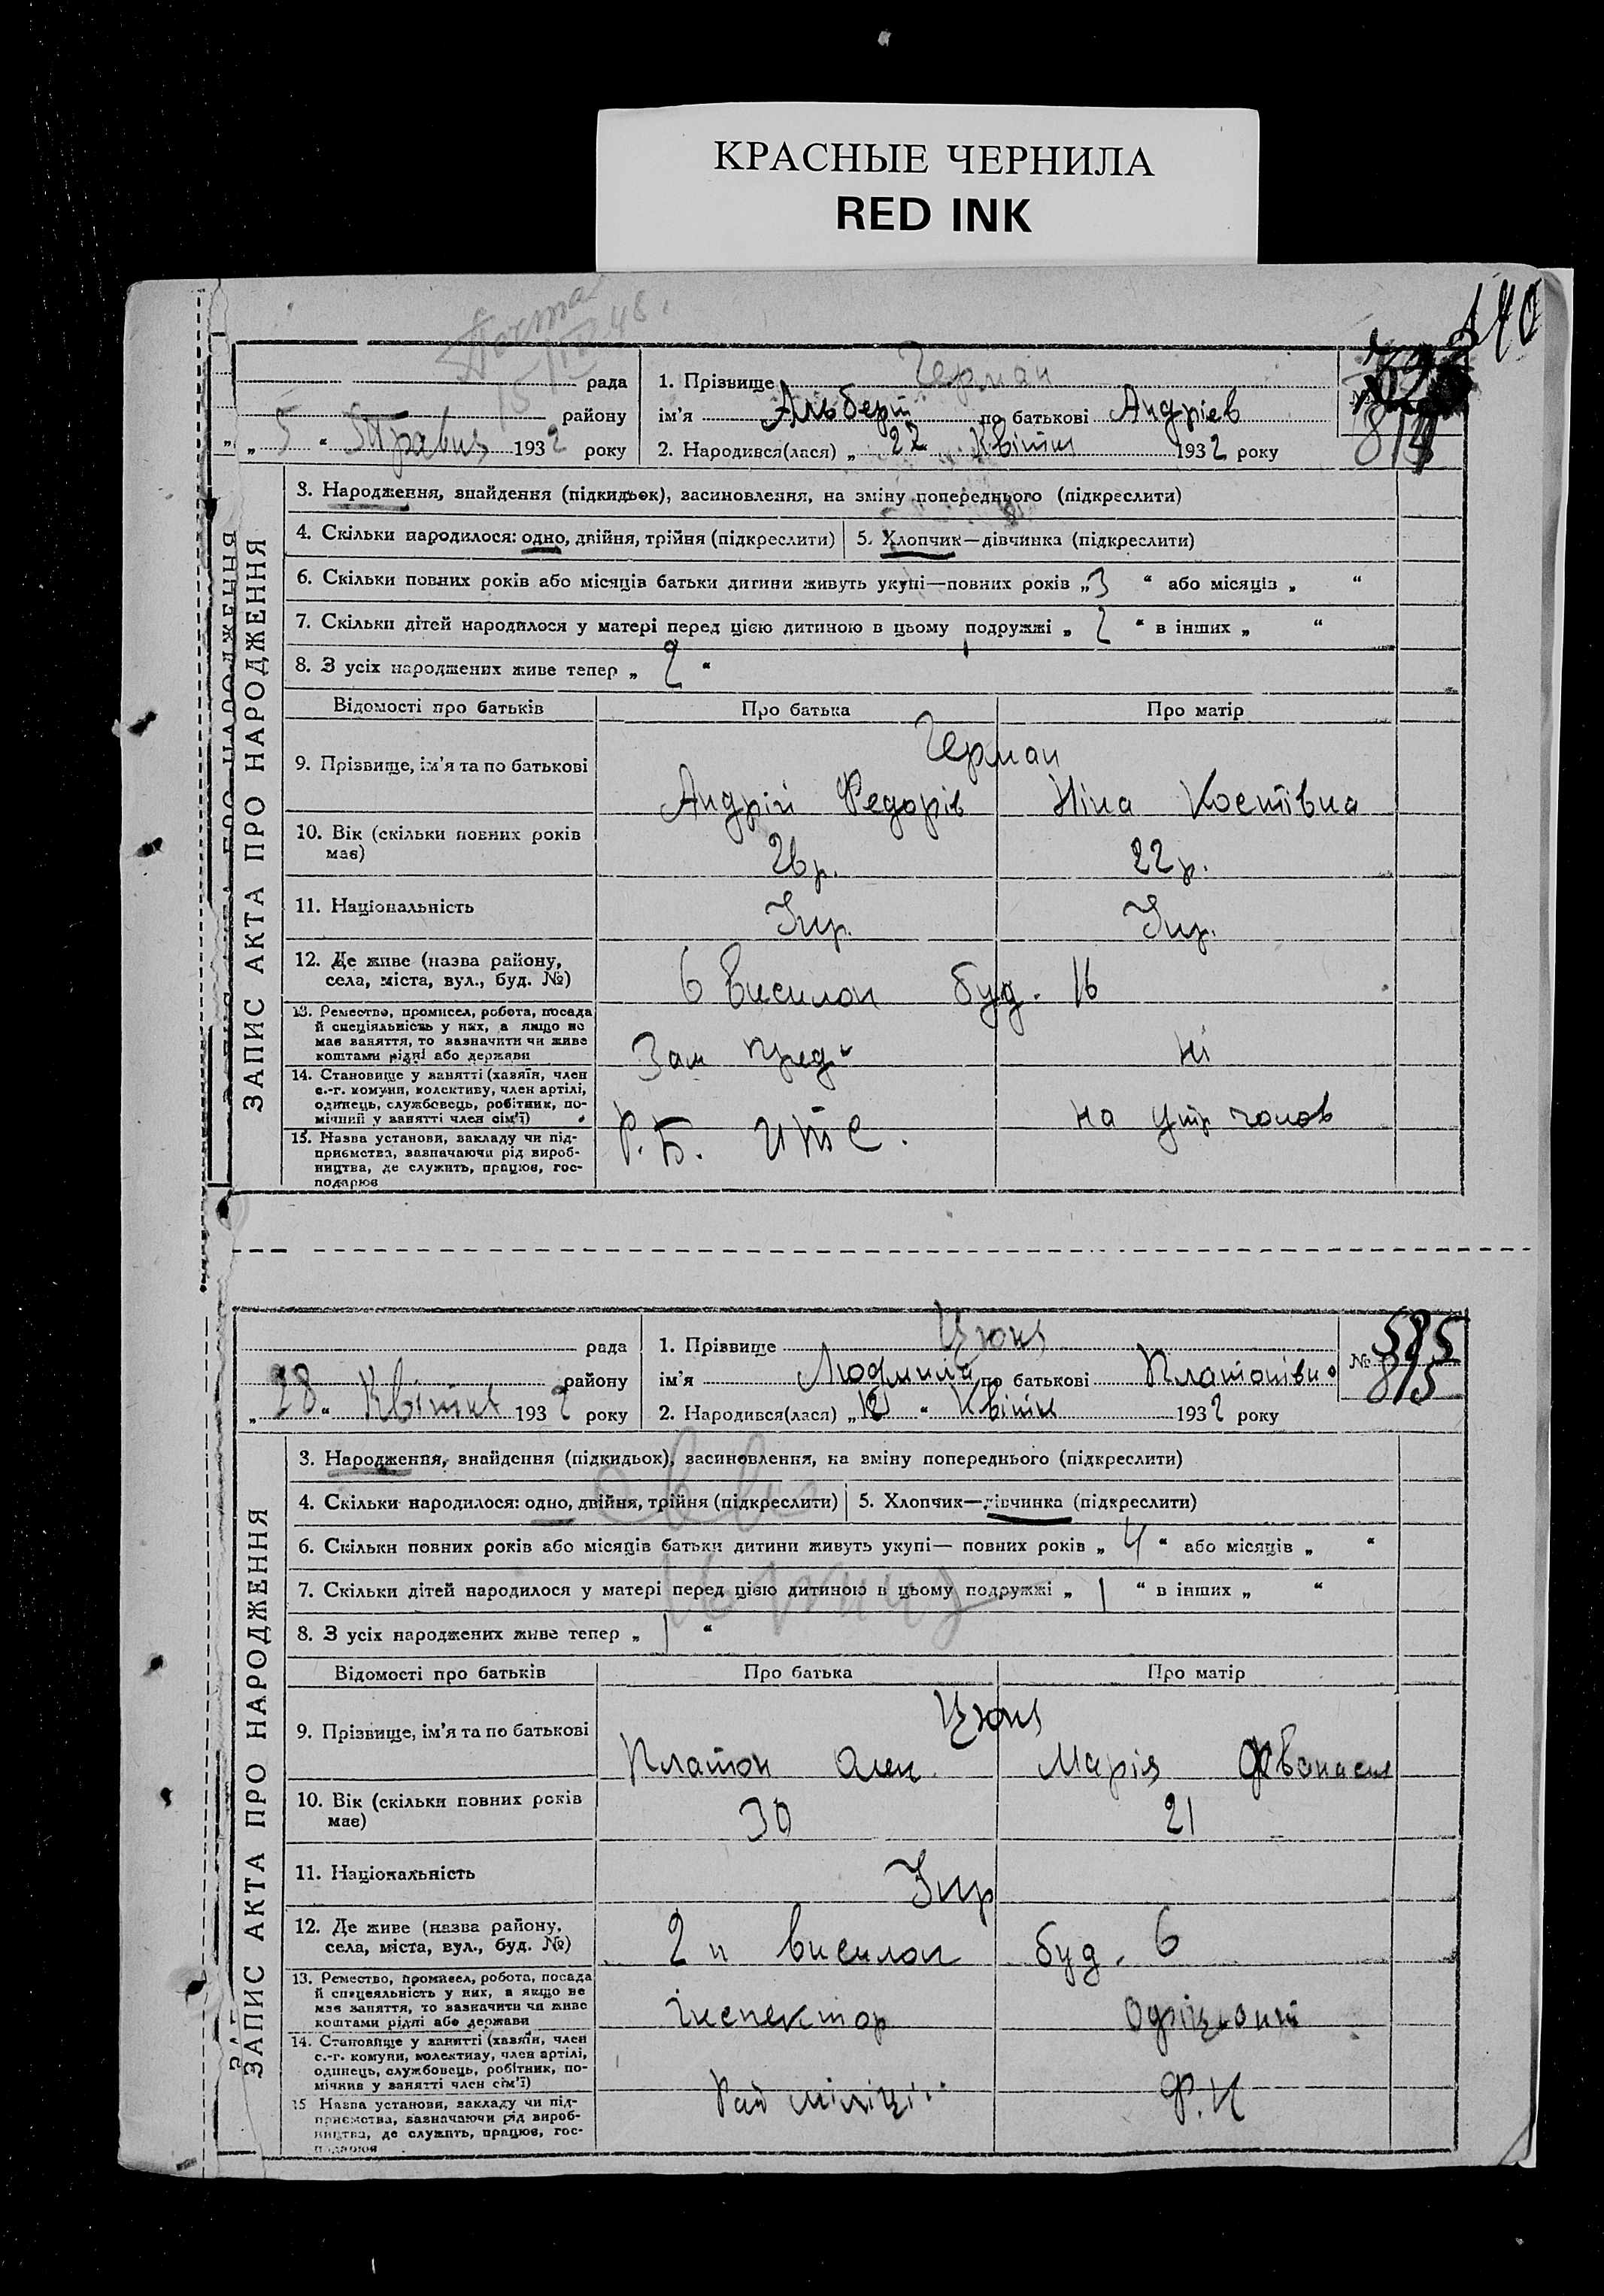 КРАСНЫЕ ЧЕРНИЛА
RED INK
140
рада
району
„ 5 “ Травня 1932 року
1. Прізвище Герман
ім'я Альберт по батькові Андріев
2. Народився(лася) „ 22 Квітня 1932 року
№
814
ЗАПИС АКТА ПРО НАРОДЖЕННЯ
3. Народження, знайдення (підкидьок), засиновлення, на зміну попереднього (підкреслити)
4. Скільки народилося: одно, двійня, трійня (підкреслити) 5. Хлопчик—дівчинка (підкреслити)
6. Скільки повних років або місяців батьки дитини живуть укупі—повних років „ 3 “ або місяців „ “
7. Скільки дітей народилося у матері перед цією дитиною в цьому подружжі „ 2 “ в інших „ “
8. З усіх народжених живе тепер „ 2 “
Відомості про батьків Про батька Про матір
Герман
9. Прізвище, ім'я та по батькові Андрій Федорів Ніна Костівна
10. Вік (скільки повних років має) 26р. 22р.
11. Національність Укр. Укр.
12. Де живе (назва району, села, міста, вул., буд. №) 6 висилок буд. 16
13. Ремество, промисел, робота, посада й спеціяльність у них, а якщо не має заняття, то зазначити чи живе коштами рідні або держави Зам Пред ні
14. Становище у занятті (хазяїн, член с.-г. комуни, колективу, член артілі, одинець, службовець, робітник, помічний у занятті член сім'ї) на утр чолов
15. Назва установи, закладу чи підприємства, зазначаючи рід виробництва, де служить, працює, господарює Р.Б. ИТС.
рада
району
„ 28 “ Квітня 1932 року
1. Прізвище Цюня
ім'я Людмила по батькові Платонівна
2. Народився(лася) „ “ Квітня 1932 року
№ 585
815
ЗАПИС АКТА ПРО НАРОДЖЕННЯ
3. Народження, знайдення (підкидьок), засиновлення, на зміну попереднього (підкреслити)
4. Скільки народилося: одно, двійня, трійня (підкреслити) 5. Хлопчик—дівчинка (підкреслити)
6. Скільки повних років або місяців батьки дитини живуть укупі— повних років „ 4 “ або місяців „ “
7. Скільки дітей народилося у матері перед цією дитиною в цьому подружжі „ 1 “ в інших „ “
8. З усіх народжених живе тепер „ 1 “
Відомості про батьків Про батька Про матір
Цюня
9. Прізвище, ім'я та по батькові Платон Олек. Марія
10. Вік (скільки повних років має) 30 21
11. Національність Укр
12. Де живе (назва району, села, міста, вул., буд. №) 2й висилок буд. 6
13. Ремество, промисел, робота, посада й спецеяльність у них, а якщо не має заняття, то зазначити чи живе коштами рідні або держави інспектор
14. Становище у занятті (хазяїн, член с.-г. комуни, колективу, член артілі, одинець, службовець, робітник, помічник у занятті член сім'ї)
15 Назва установи, закладу чи підприємства, зазначаючи рід виробництва, де служить, працює, господарює Рай міліції